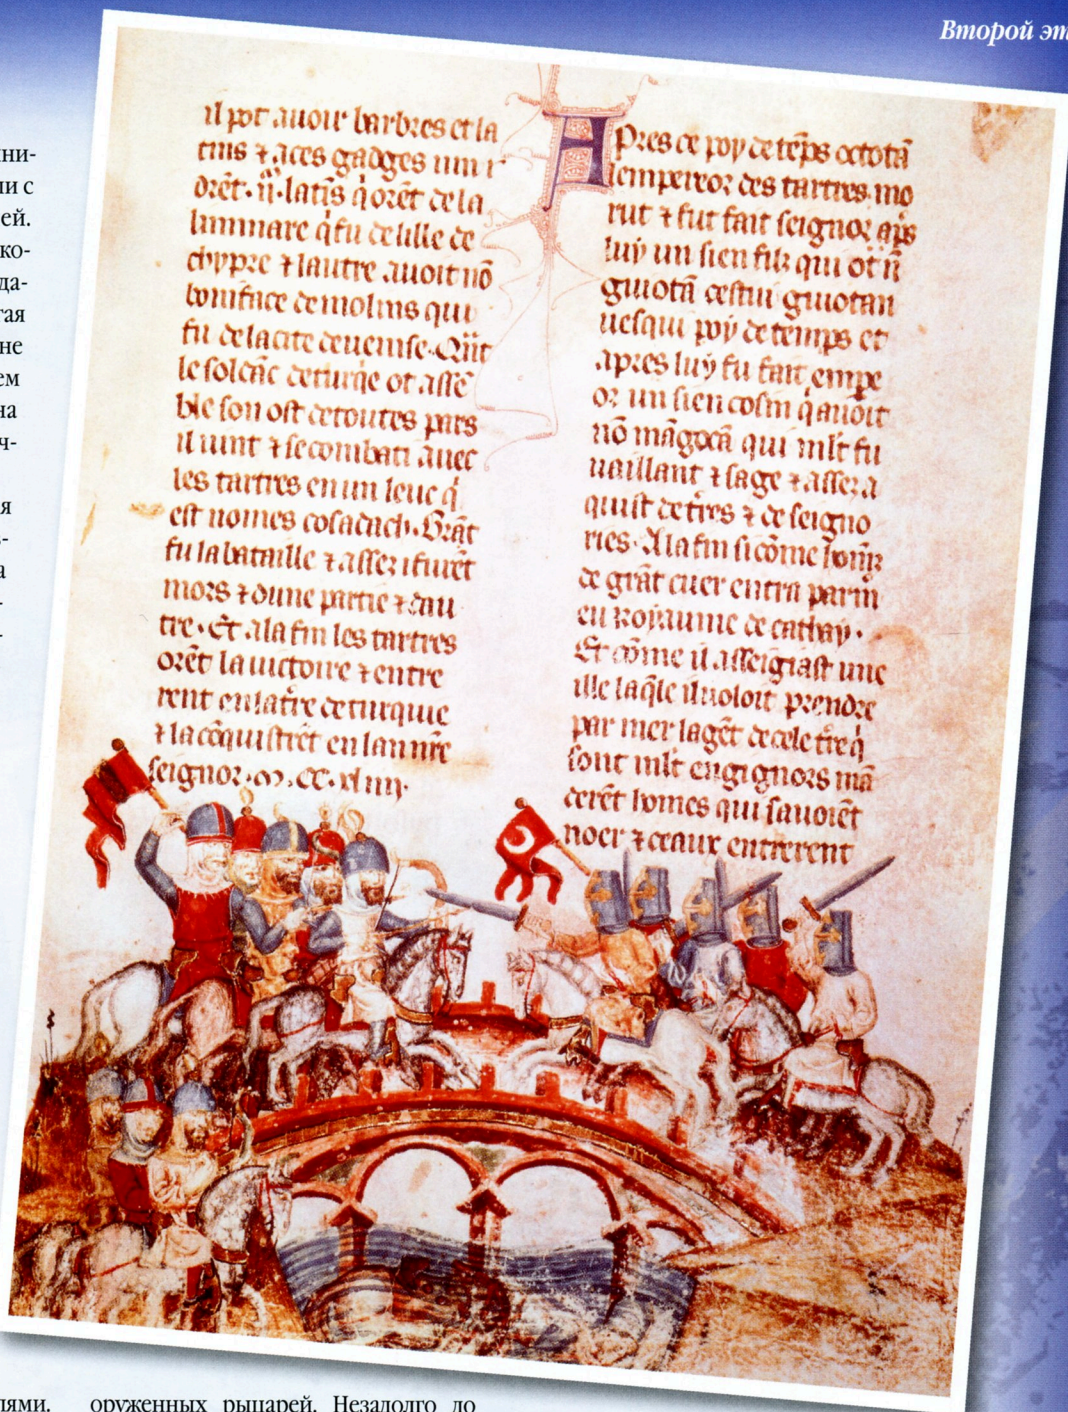 Второй эт
ни-
и с
ей.
ко-
да-
гая
не
ем
на
ч-
я
-
а
-
-
il pot auoir barbres et la
tins ⁊ aces gadges
orēt · ij · latīs q̄ orēt de la
q̄ fu de lille de
chypre ⁊ lautre auoit nō
boniface de molins qui
fu de la cite de uenise · Qn̄t
le soldāc de turq̄ie ot assē
ble son ost de toutes pars
il uint ⁊ se combati auec
les tartres en un leuc q̄
est nomes cosadach · Grāt
fu la bataille ⁊ assez i furēt
mors ⁊ dune partie ⁊ dau
tre · Et a la fin les tartres
orēt la uictoire ⁊ entre
rent en la tr̄e de turquie
⁊ la cōquistrēt en lan nr̄e
seignor · m · cc · xliiij ·
APres ce poy de tēps octotā
lempereor des tartres mo
rut ⁊ fut fait seignor ap̄s
luy un sien filz qui ot nō
guiotā cestui guiotan
uesqui poy de temps et
apres luy fu fait empe
or un sien cosin q̄ auoit
nō māgocā qui ml̄t fu
uaillant ⁊ sage ⁊ assez a
quist de tr̄es ⁊ de seigno
ries · A la fin si cōme
de grāt cuer entra parmi
eu royaume de cathay ·
Et cōme il asseigiast une
ille laq̄le il uoloit prendre
par mer la gēt de cele tr̄e q̄
sont ml̄t engignors mā
derēt homes qui sauoiēt
noer ⁊ ceaux entrerent
лями.
оруженных рыцарей. Незадолго до